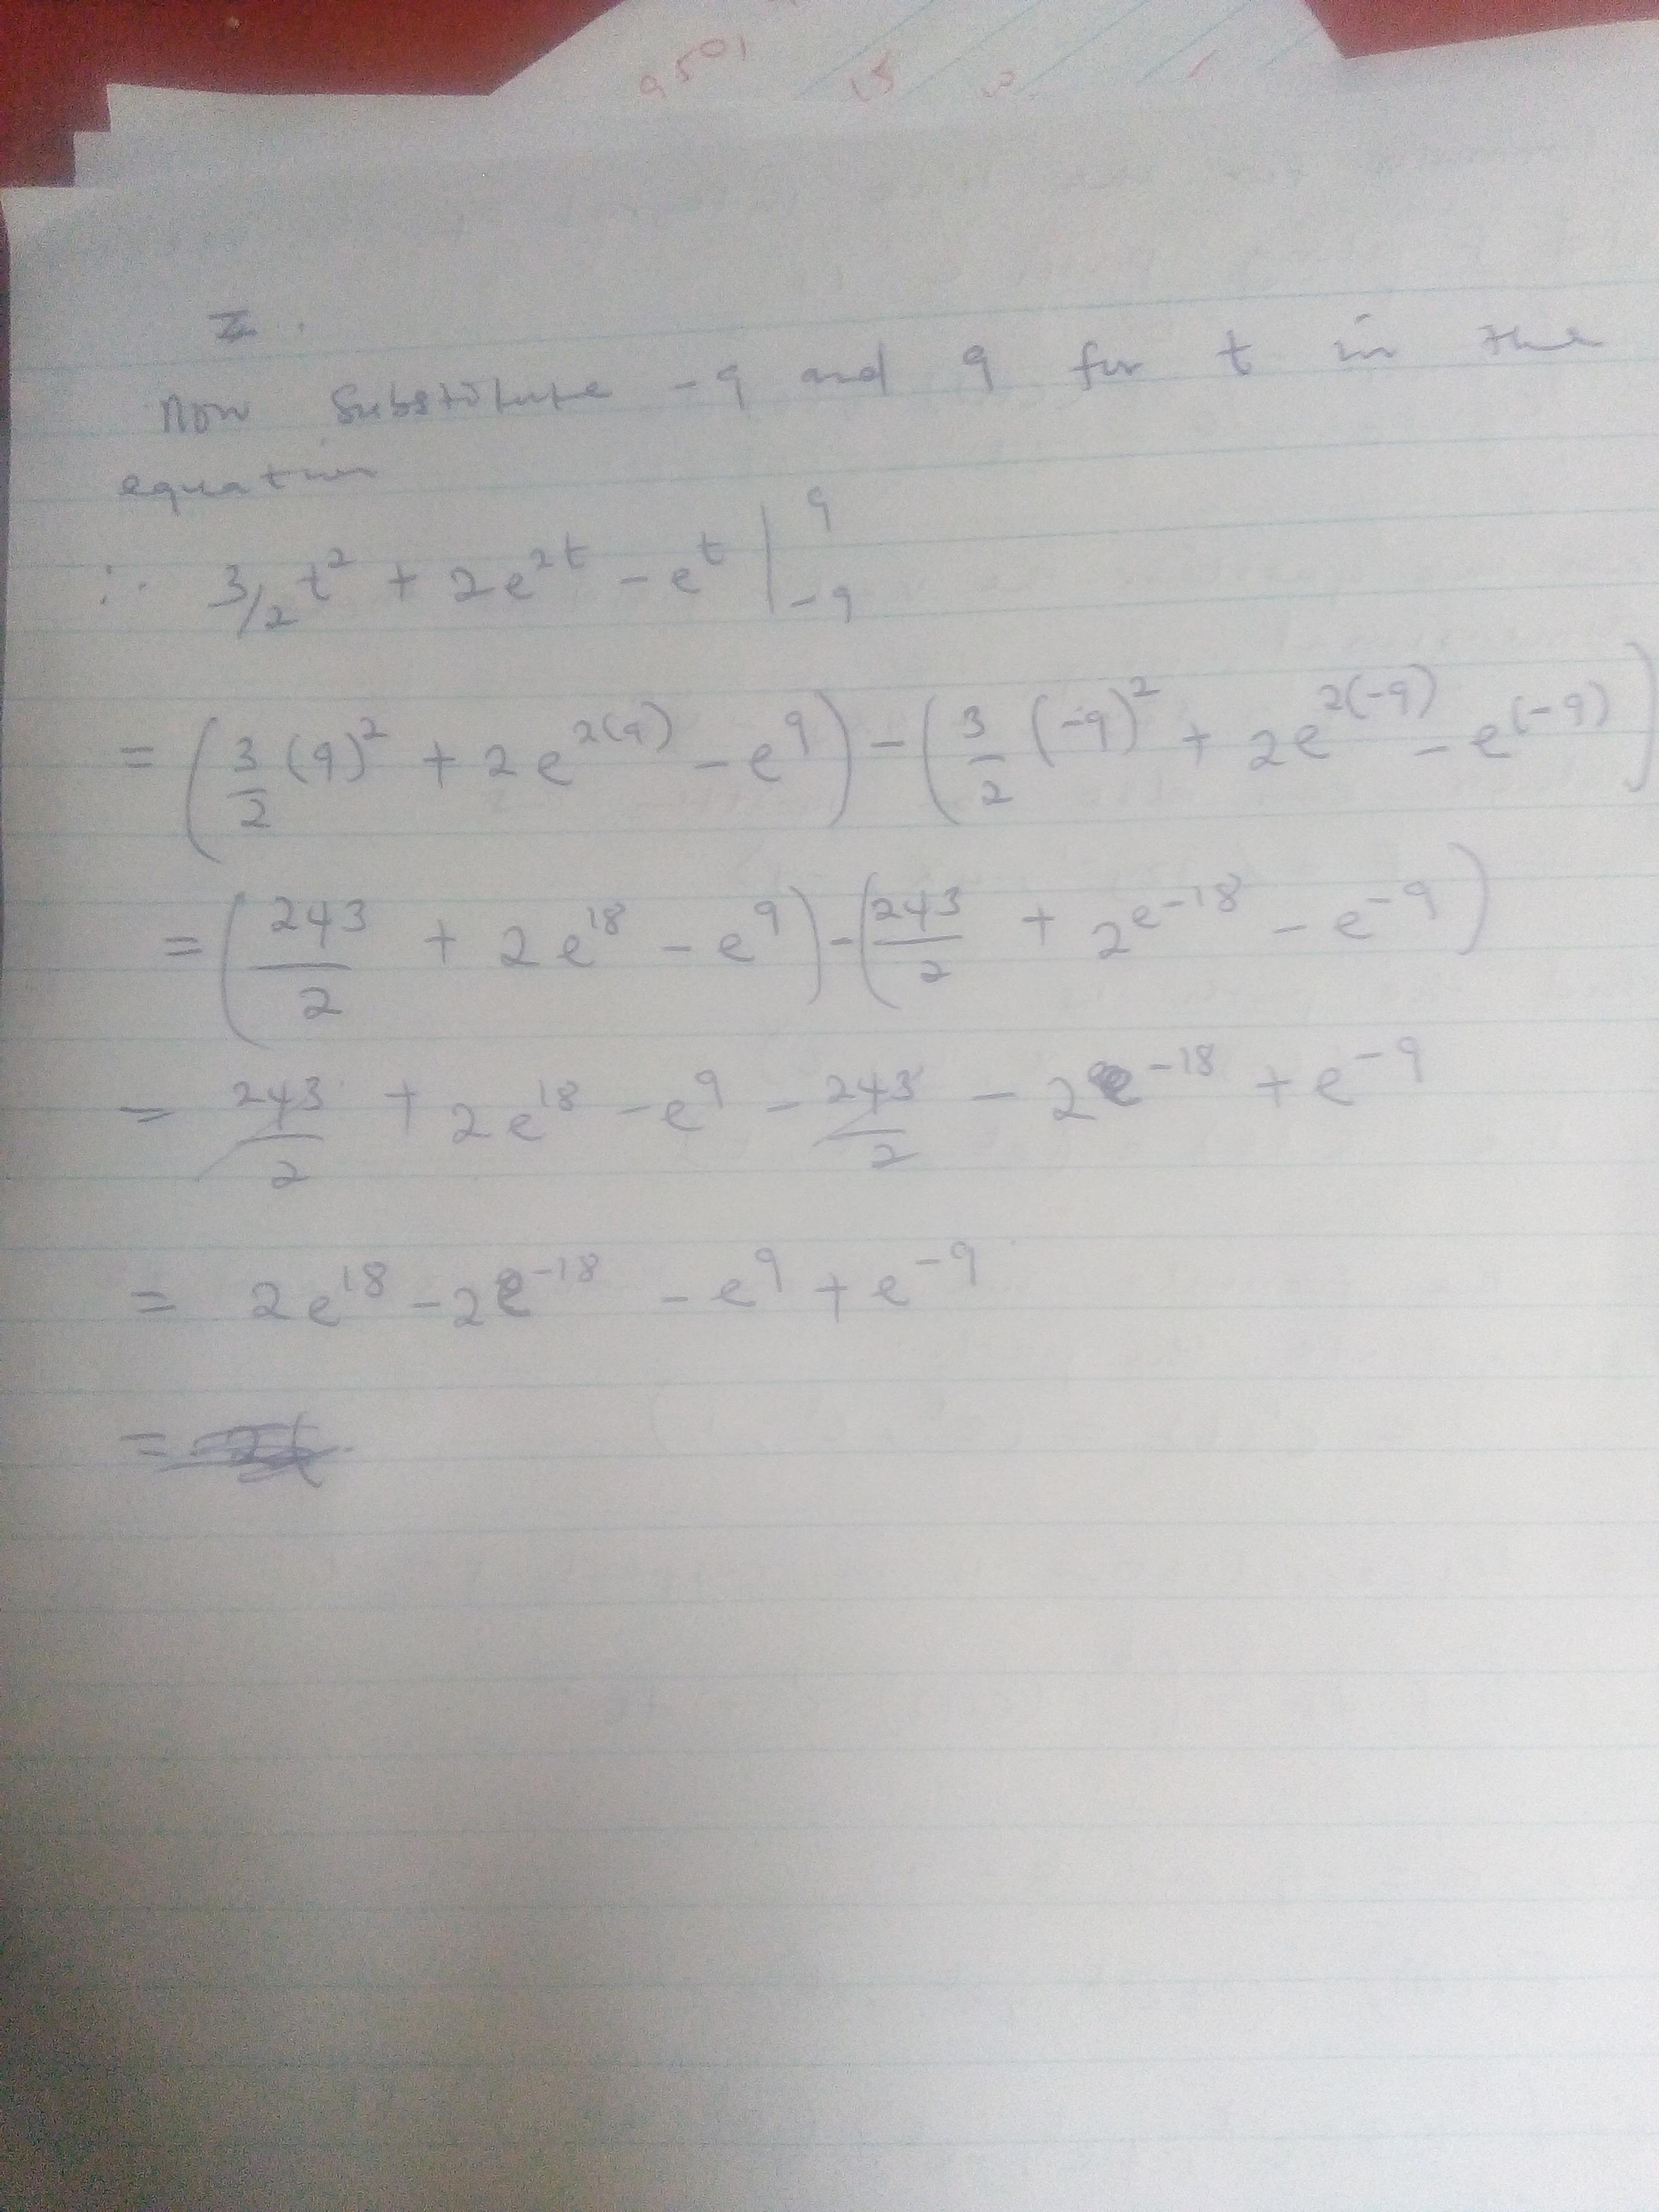 9501 15
I.
Now substitute -9 and 9 for t in the
equation
∴ 3/2 t² + 2e^{2t} - e^t |_{-9}^{9}
= (3/2 (9)² + 2e^{2(9)} - e^9) - (3/2 (-9)² + 2e^{2(-9)} - e^{(-9)})
= (243/2 + 2e^{18} - e^9) - (243/2 + 2^{e-18} - e^{-9})
= 243/2 + 2e^{18} - e^9 - 243/2 - 2e^{-18} + e^{-9}
= 2e^{18} - 2e^{-18} - e^9 + e^{-9}
=